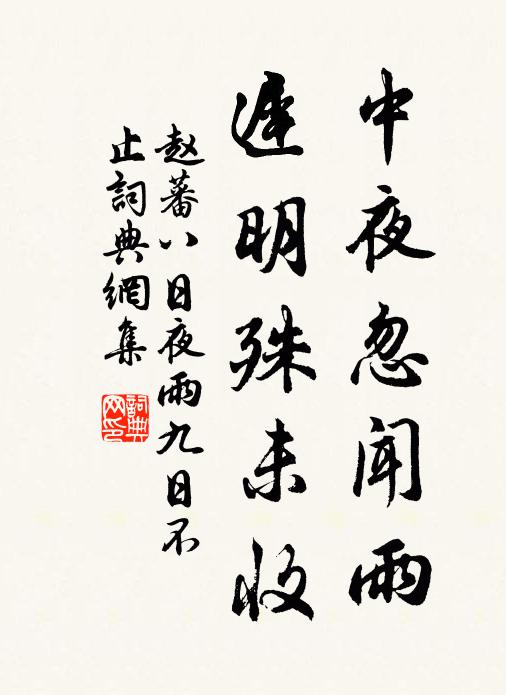 中夜忽聞雨
遲明殊未收
赵蕃八日夜雨九日不
止詞典網集
詞典
网印